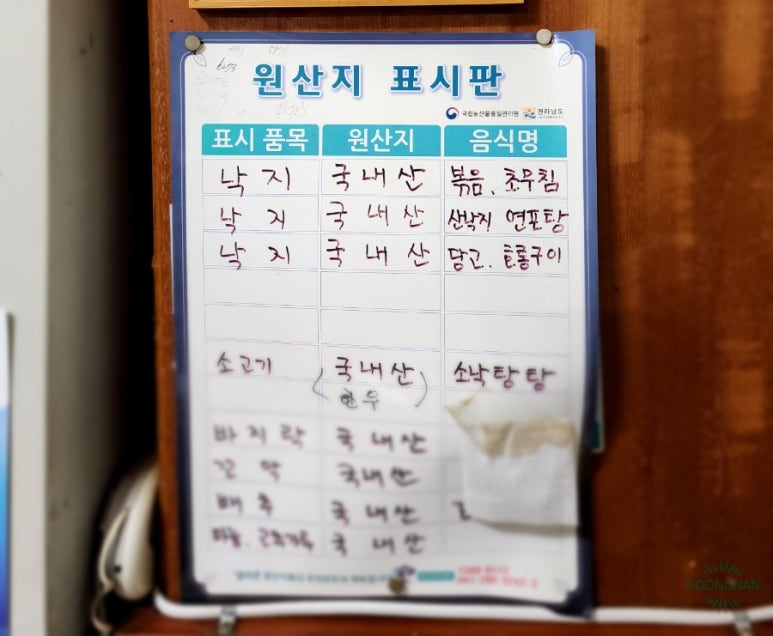 원산지 표시판
국립농산물품질관리원 전라남도
표시 품목 원산지 음식명
낙지 국내산 볶음, 초무침
낙지 국내산 산낙지 연포탕
낙지 국내산 당고, 호롱구이
소고기 국내산 소낙탕탕
(한우)
바지락 국내산
꼬막 국내산
배추 국내산
마늘, 고추가루 국내산
GOONGHAN